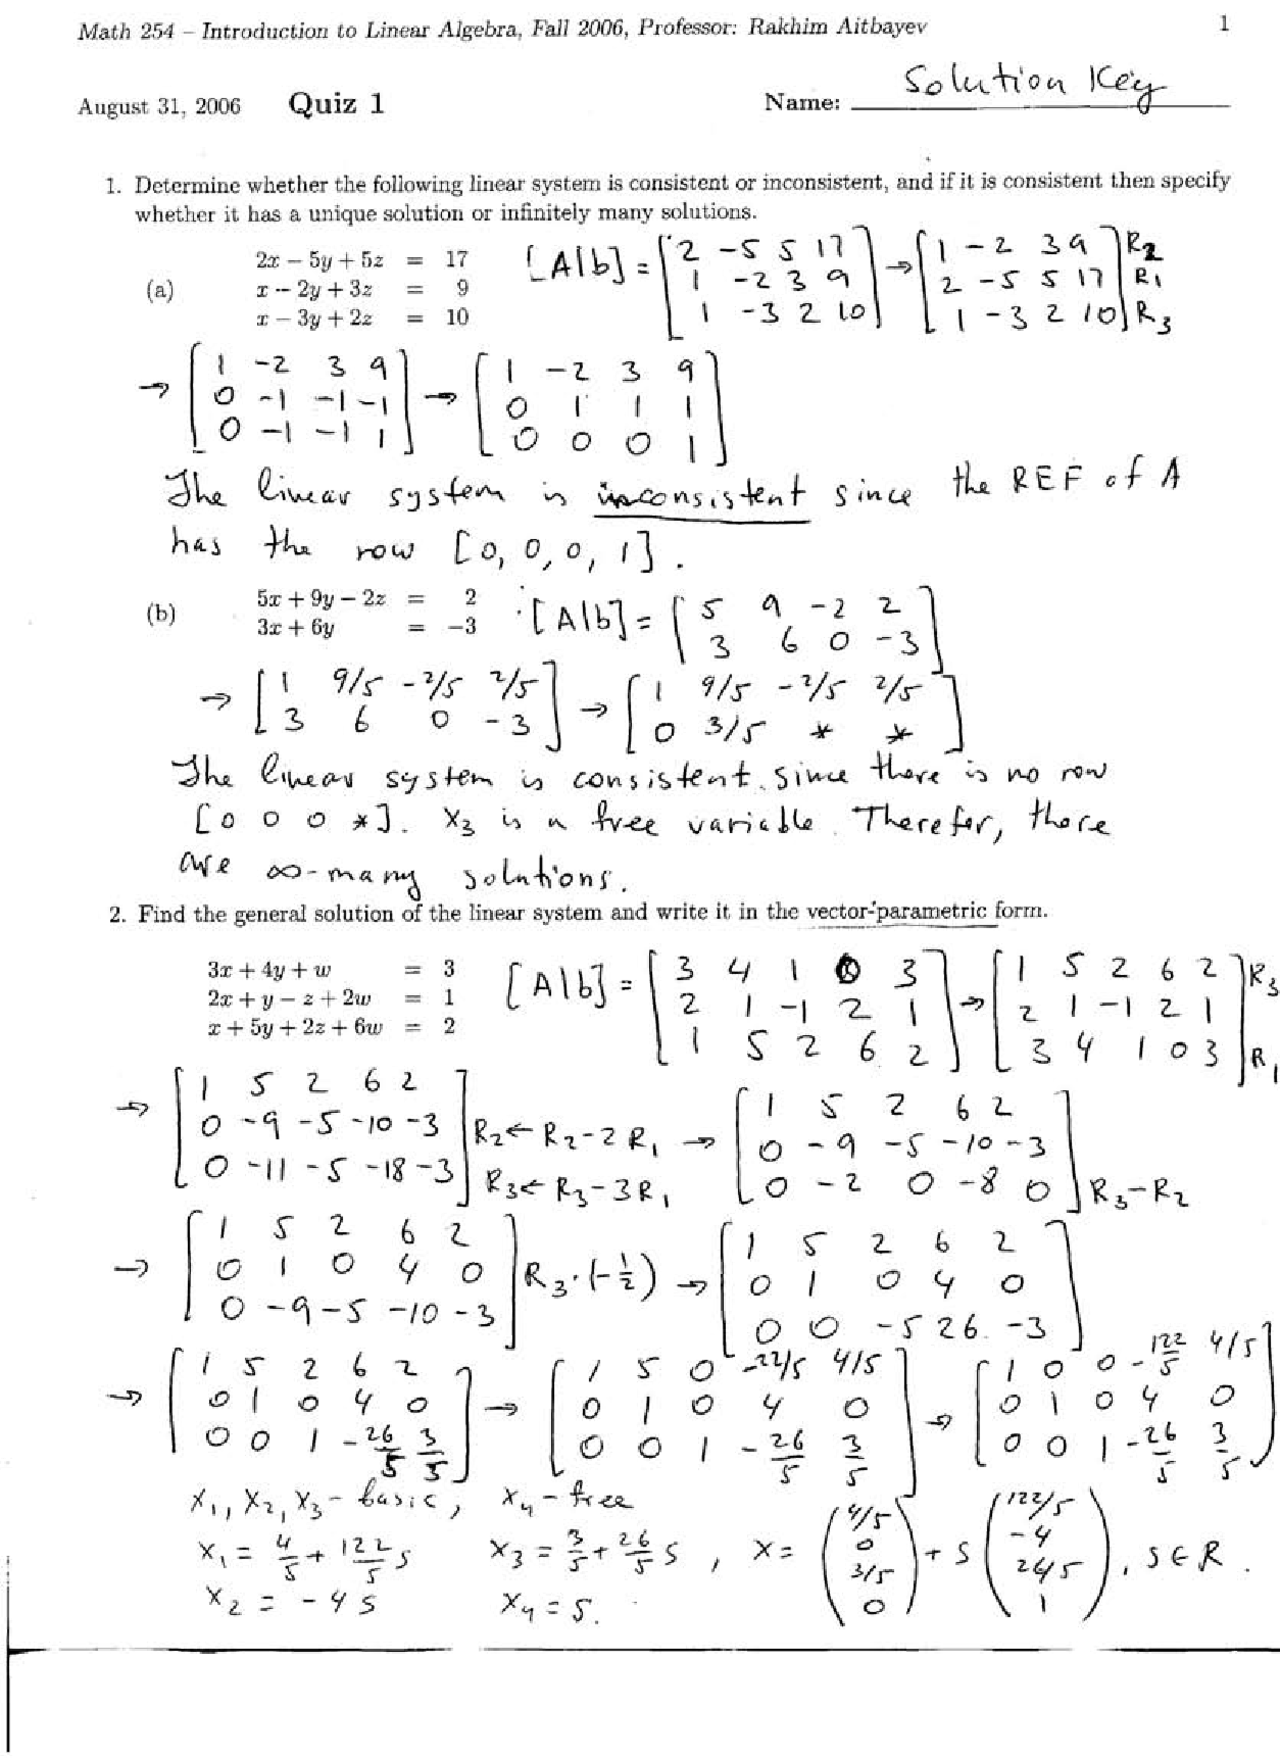 Math 254 – Introduction to Linear Algebra, Fall 2006, Professor: Rakhim Aitbayev 1
August 31, 2006 Quiz 1 Name: Solution Key
1. Determine whether the following linear system is consistent or inconsistent, and if it is consistent then specify
whether it has a unique solution or infinitely many solutions.
(a)
2x − 5y + 5z = 17
x − 2y + 3z = 9
x − 3y + 2z = 10
[A|b] = [2 -5 5 17
1 -2 3 9
1 -3 2 10] → [1 -2 3 9
2 -5 5 17
1 -3 2 10] R2
R1
R3
→ [1 -2 3 9
0 -1 -1 -1
0 -1 -1 1] → [1 -2 3 9
0 1 1 1
0 0 0 1]
The linear system is inconsistent since the REF of A
has the row [0, 0, 0, 1].
(b)
5x + 9y − 2z = 2
3x + 6y = −3
[A|b] = [5 9 -2 2
3 6 0 -3]
→ [1 9/5 -2/5 2/5
3 6 0 -3] → [1 9/5 -2/5 2/5
0 3/5 * *]
The linear system is consistent. since there is no row
[0 0 0 *]. x3 is a free variable. Therefor, there
are ∞-many solutions.
2. Find the general solution of the linear system and write it in the vector-parametric form.
3x + 4y + w = 3
2x + y − z + 2w = 1
x + 5y + 2z + 6w = 2
[A|b] = [3 4 1 0 3
2 1 -1 2 1
1 5 2 6 2] → [1 5 2 6 2
2 1 -1 2 1
3 4 1 0 3] R3
R1
→ [1 5 2 6 2
0 -9 -5 -10 -3
0 -11 -5 -18 -3] R2 ← R2 - 2R1
R3 ← R3 - 3R1
→ [1 5 2 6 2
0 -9 -5 -10 -3
0 -2 0 -8 0] R3 - R2
→ [1 5 2 6 2
0 1 0 4 0
0 -9 -5 -10 -3] R3·(-1/2) → [1 5 2 6 2
0 1 0 4 0
0 0 -5 26 -3]
→ [1 5 2 6 2
0 1 0 4 0
0 0 1 -26/5 3/5] → [1 5 0 -22/5 4/5
0 1 0 4 0
0 0 1 -26/5 3/5] → [1 0 0 -122/5 4/5
0 1 0 4 0
0 0 1 -26/5 3/5]
x1, x2, x3 - basic, x4 - free
x1 = 4/5 + 122/5 s x3 = 3/5 + 26/5 s, x = (4/5
0
3/5
0) + s (122/5
-4
26/5
1), s ∈ R.
x2 = -4s x4 = s.